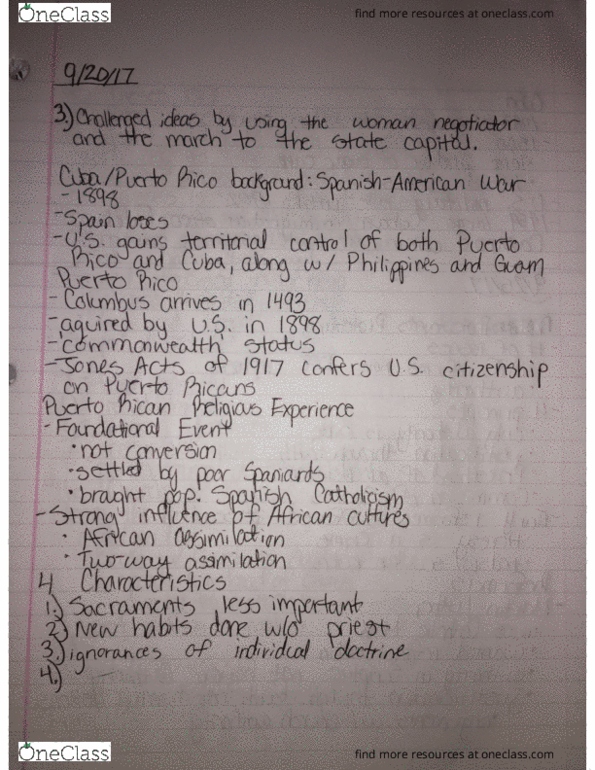 OneClass
find more resources at oneclass.com
9/20/17
3.) Challenged ideas by using the woman negoticator
and the march to the state capital.
Cuba/Puerto Rico background: Spanish-American War
- 1898
- Spain loses
- U.S. gains territorial control of both Puerto
Rico and Cuba, along w/ Philippines and Guam
Puerto Rico
- Columbus arrives in 1493
- aquired by U.S. in 1898
- commonwealth status
- Jones Acts of 1917 confers U.S. citizenship
on Puerto Ricans
Puerto Rican Religious Experience
- Foundational Event
• not conversion
• settled by poor Spaniards
• brought pop. Spanish Catholicism
- Strong influence of African cultures
• African assimilation
• Two-way assimilation
4 Characteristics
1.) Sacraments less important
2.) New habits done w/o priest
3.) ignorances of individual doctrine
4.)
OneClass
find more resources at oneclass.com